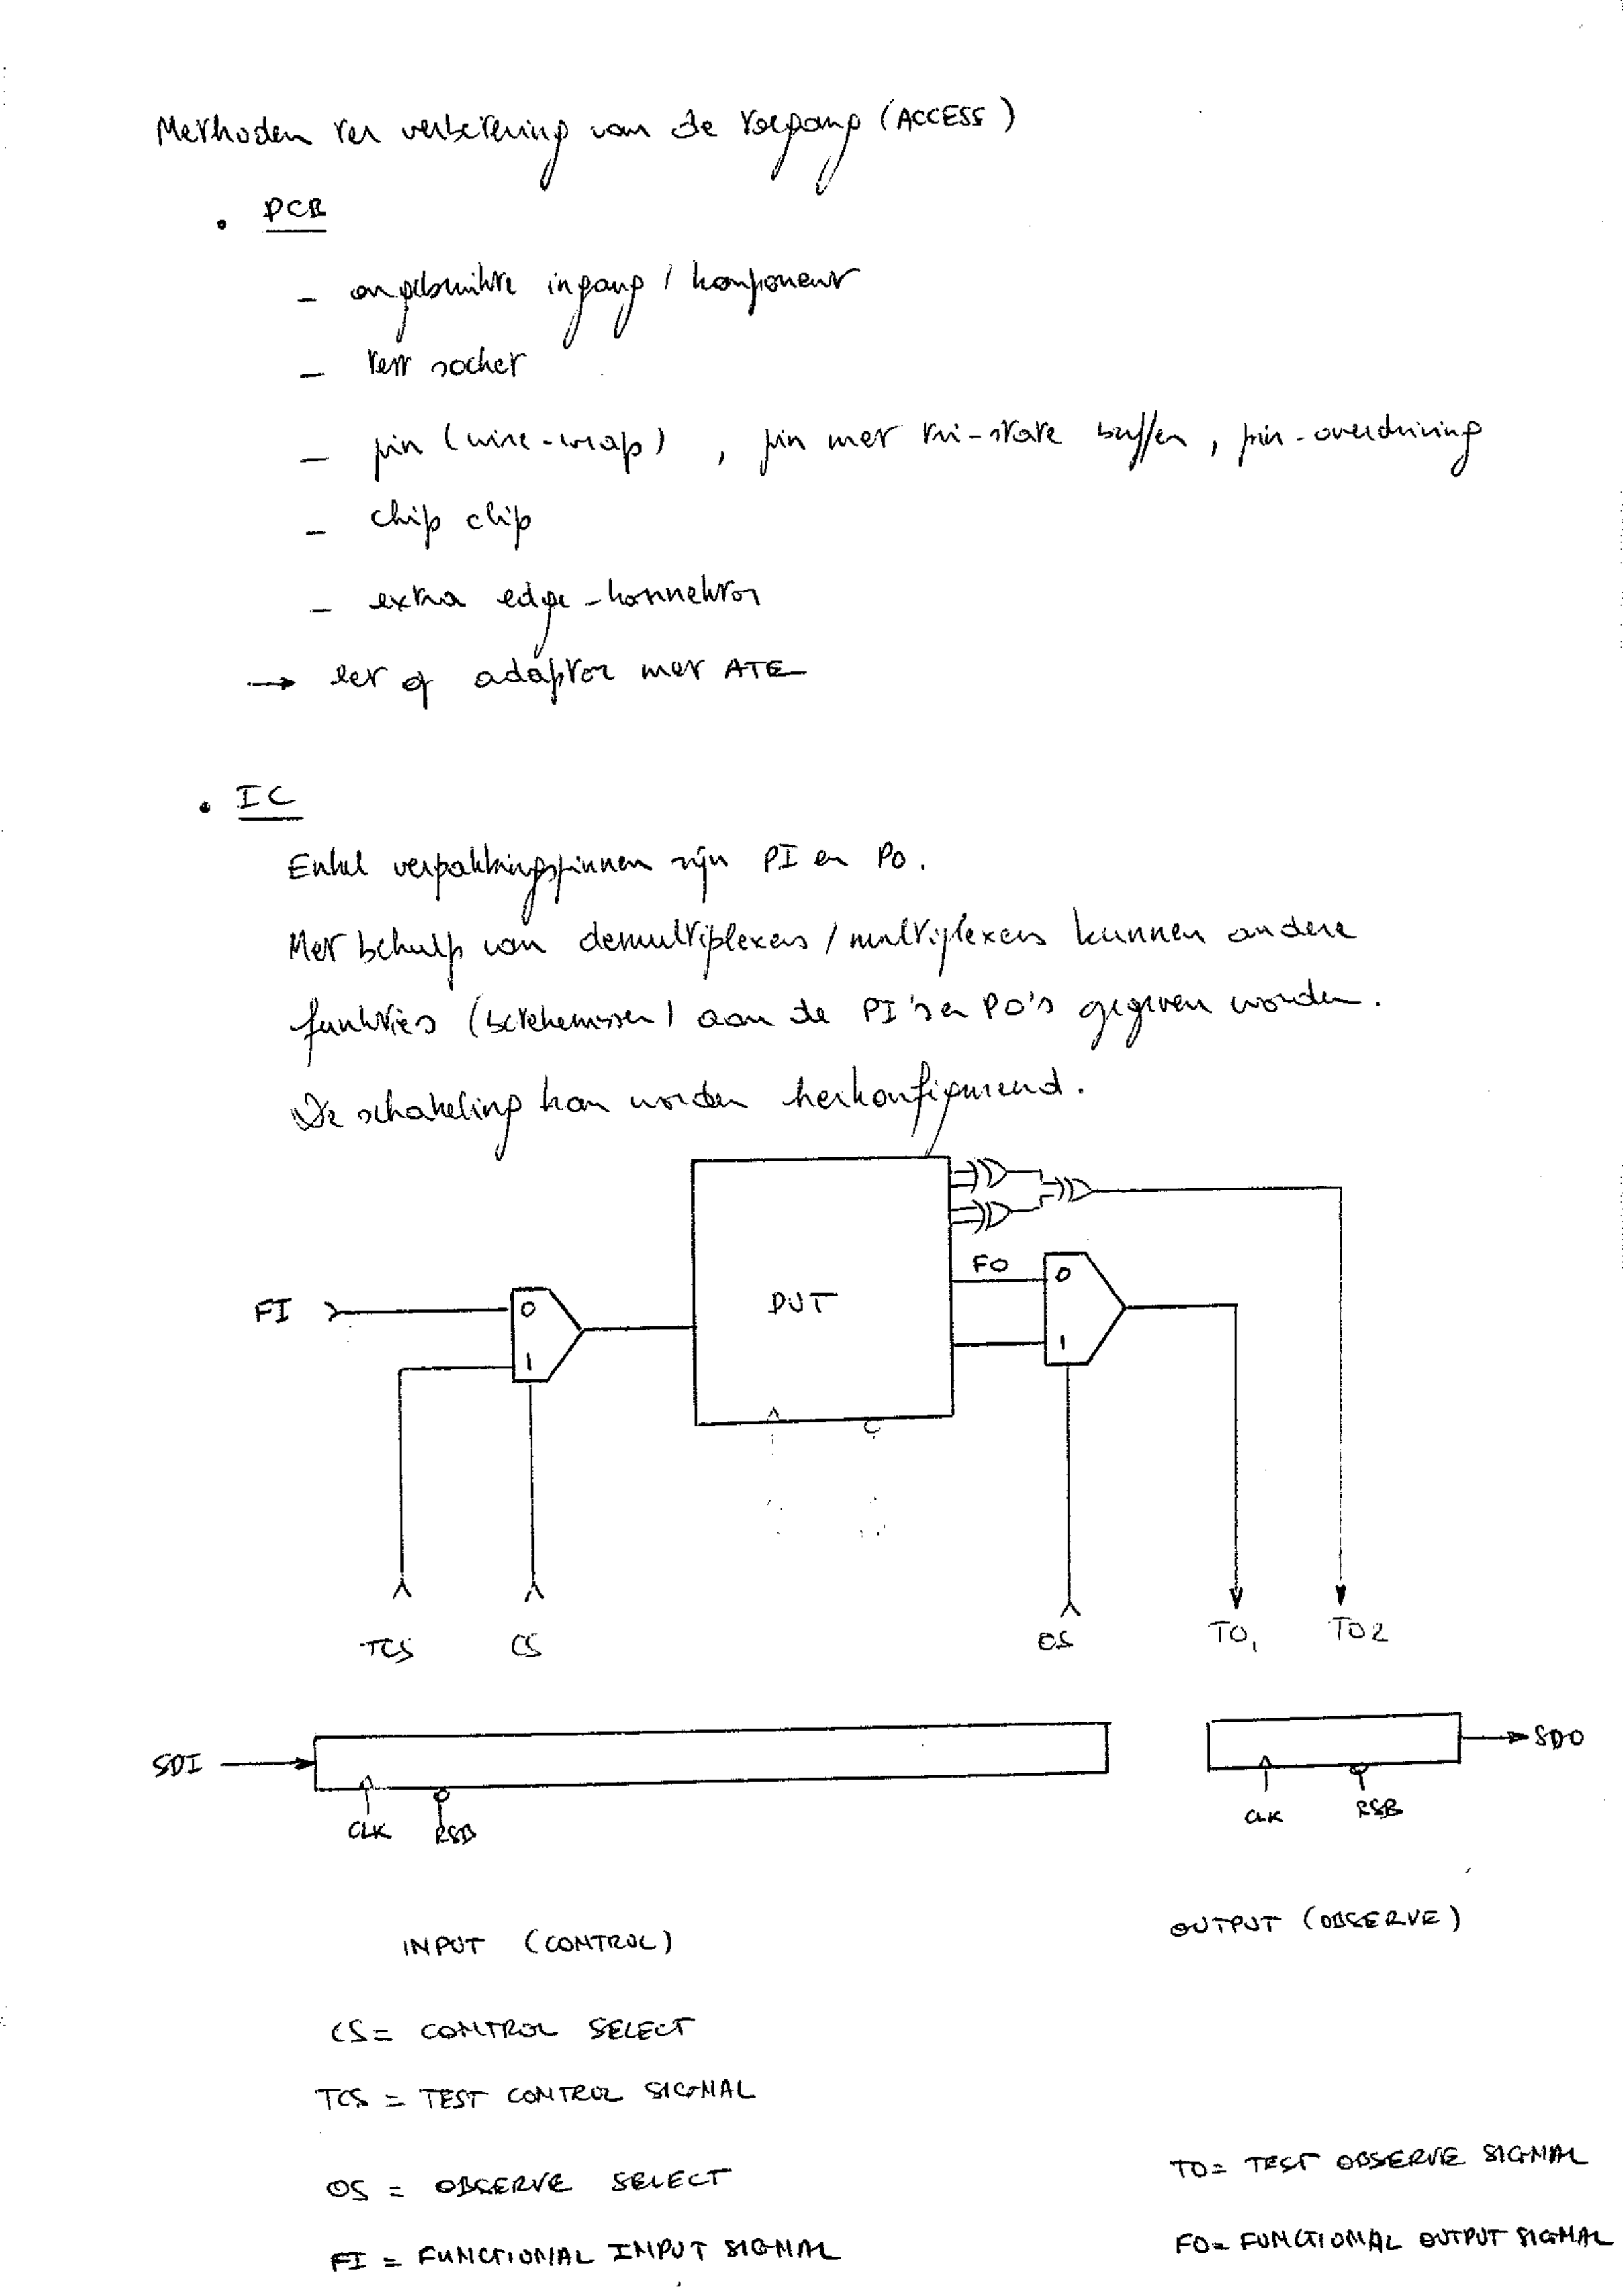 Methoden ter verbetering van de toegang (ACCESS)
. PCB
- ongebruikte ingang / komponent
- test socket
- pin (wire-wrap) , pin met tri-state buffer , pin-overdriving
- chip clip
- extra edge-konnektor
→ let op adaptor met ATE
. IC
Enkel verpakkingspinnen zijn PI en PO.
Met behulp van demultiplexers / multiplexers kunnen andere
funkties (betekenissen) aan de PI's en PO's gegeven worden.
De schakeling kan worden herkonfigureerd.
FO
0
FI
0
DUT
1
1
TCS CS OS TO1 TO2
SDI
SDO
CLK RSB
CLK RSB
OUTPUT (OBSERVE)
INPUT (CONTROL)
CS = CONTROL SELECT
TCS = TEST CONTROL SIGNAL
TO = TEST OBSERVE SIGNAL
OS = OBSERVE SELECT
FO = FUNCTIONAL OUTPUT SIGNAL
FI = FUNCTIONAL INPUT SIGNAL